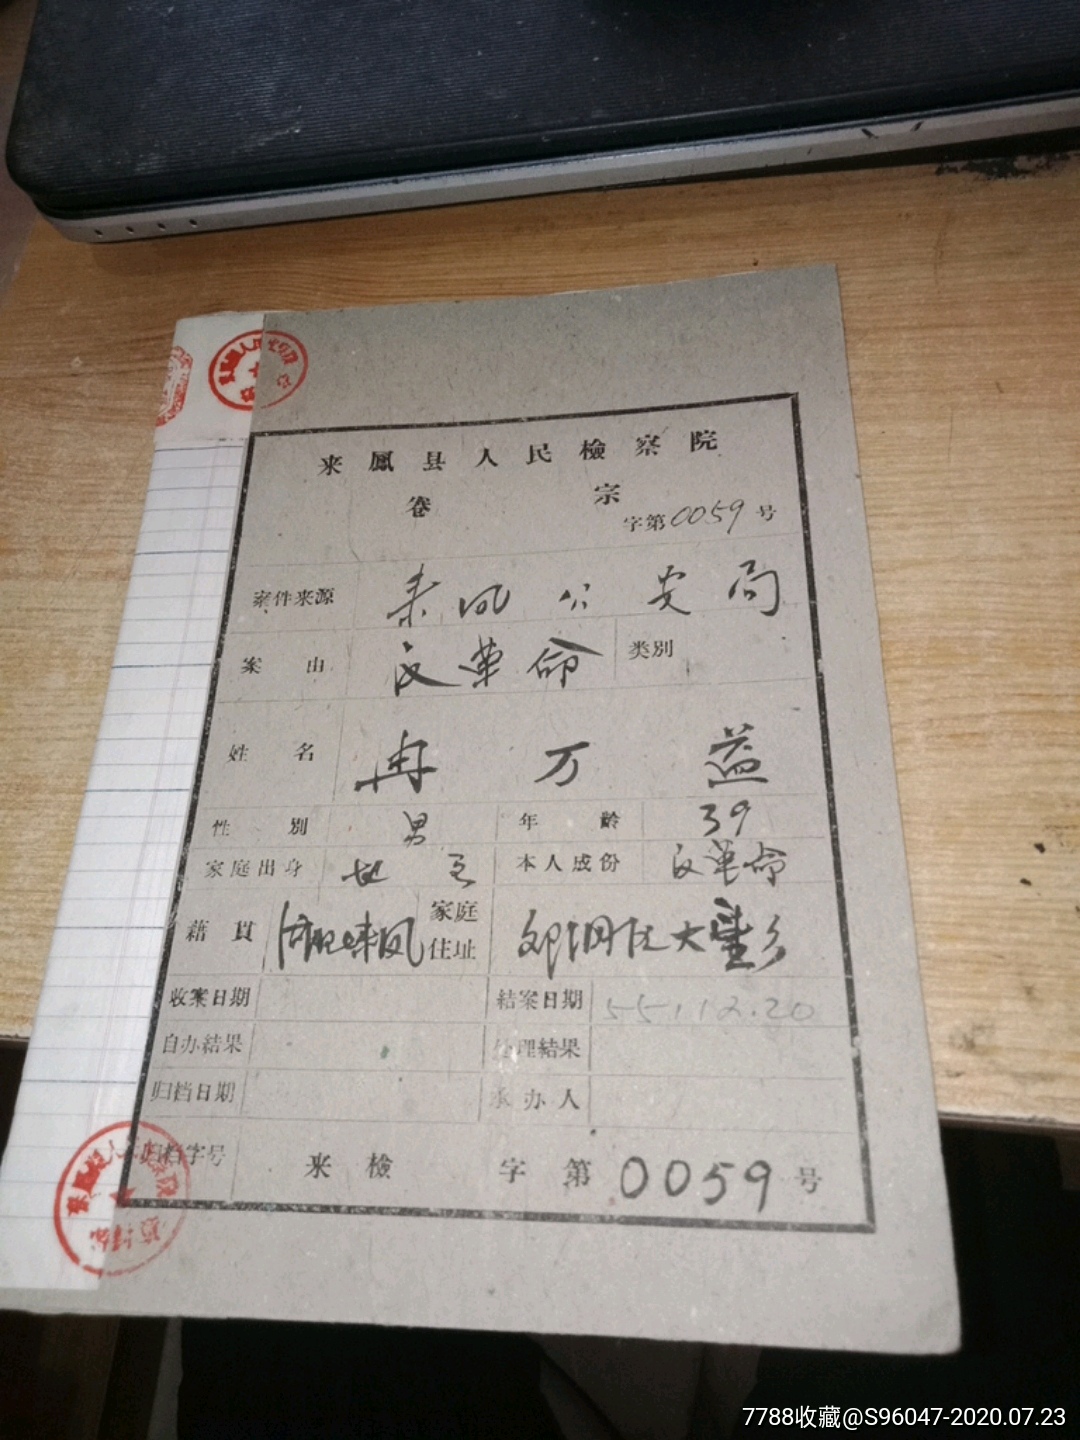 来鳳县人民檢察院
卷 宗
字第0059号
案件来源 来凤公安局
案由 反革命 类別
姓名 冉万益
性別 男 年齡 39
家庭出身 地主 本人成份 反革命
藉貫 来凤 家庭住址 大
收案日期 結案日期 55.12.20
自办結果 处理結果
归档日期 承办人
归档字号 来檢 字第0059号
7788收藏@S96047-2020.07.23